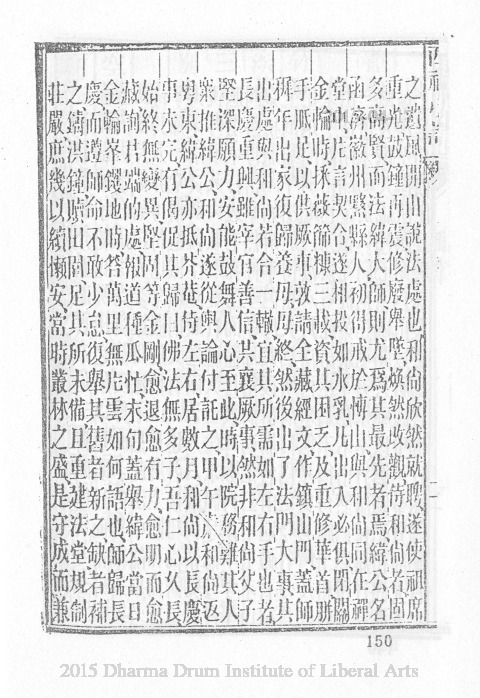 之遺風開山說法處也和尚欣然就聘遂使祖席
重光鼓鐘再震修廢舉墜煥然改觀侍和尚者固
多高賢而法緯大師則尤爲其最先者焉緯公名
函濟徽州黟縣人初得戒於博山與和尚同在禪
堂中片言契合遂相投如水乳凡出入必俱閉關
金輪時採薇篩糠三載資其困乏及重修華首胼
手胝足以供厥事敦請全藏經文作鎮山門蓋師
穉年出家復歸養母母終然後出了法門大事其
出處與和尚若合一轍宜其所需如左右手也者
長慶重興雖宰官善信共襄厥事然非和尚父子
堅深願力安能鼓舞人心至此時以院務難其人
眾推緯公和尚遂從輿論付託之甲午 和尚返
粵東緯公亦抵芥菴侍左右居數月和尚以長慶
事未完有偈促其歸曰佛法無多子吾仁心久長
始終無變異堅固等金剛愈退愈有力愈明而愈
藏試看端的處報道種瓜忙末句蓋舉緯公當日
金輪峯钁地時答萬里無片雲如何語也師歸長
慶而遵師命不敢少怠復舉其舊者新之缺者補
之鑄洪鐘贖田園足其所未備且重建法堂規制
莊嚴庶幾以續懶安當時叢林之盛是守成而兼
150
2015 Dharma Drum Institute of Liberal Arts